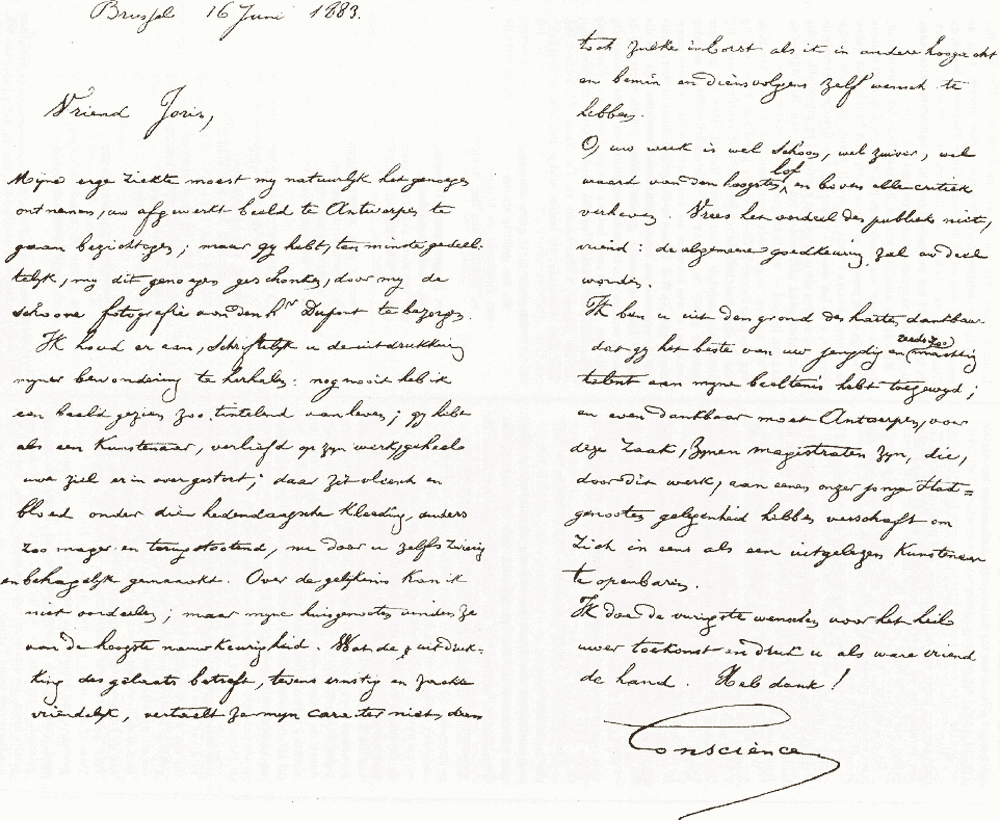 Brussel 16 Juni 1883.
Vriend Joris,
Mijne erge ziekte moest my natuurlyk het genoegen
ontnemen, uw afgewerkt beeld te Antwerpen te
gaan bezichtigen; maar gy hebt, ten minste gedeel-
telyk, my dit genoegen geschonken, door my de
schoone fotografie van den hr Dupont te bezorgen.
Ik houd er aan, schriftelyk u de uitdrukking
myner bewondering te herhalen: nog nooit heb ik
een beeld gezien zoo tintelend van leven; gy hebt
als een Kunstenaar, verliefd op zyn werk, geheel
uwe ziel er in overgestort; daar zit vleesch en
bloed onder die hedendaagsche Kleeding, anders
zoo mager en terugstootend, nu door u zelfs zwierig
en behagelyk gemaakt. Over de gelykenis kan ik
niet oordeelen; maar myne huisgenooten vinden ze
van de hoogste nauwkeurigheid. Wat de uitdruk-
king des gelaats betreft, tevens ernstig en zachte
vriendelyk, vertaelt ze myn caracter niet, dan
toch zulke inborst als ik in andere hoogacht
en bemin en diensvolgens zelf wensch te
hebben.
O, uw werk is wel schoon, wel zuiver, wel
waard van den hoogsten lof, en boven alle critiek
verheven. Vrees het oordeel des publieks niet,
vriend: de algemeene goedkeuring zal uw deel
worden.
Ik ben u uit den grond des harten dankbaar
dat gy het beste van uw jeugdig en reeds zoo machtig
talent aan myne beeltenis hebt toegewyd;
en even dankbaar moet Antwerpen, voor
deze zaak, zynen magistraten zyn, die,
door dit werk, aan eenen onzer jonge Stad=
genooten gelegenheid hebben verschaft om
zich in eens als een uitgelezen Kunstenaar
te openbaren.
Ik doe de vurigste wenschen voor het heil
uwer toekomst en druk u als ware vriend
de hand. Heb dank!
Conscience